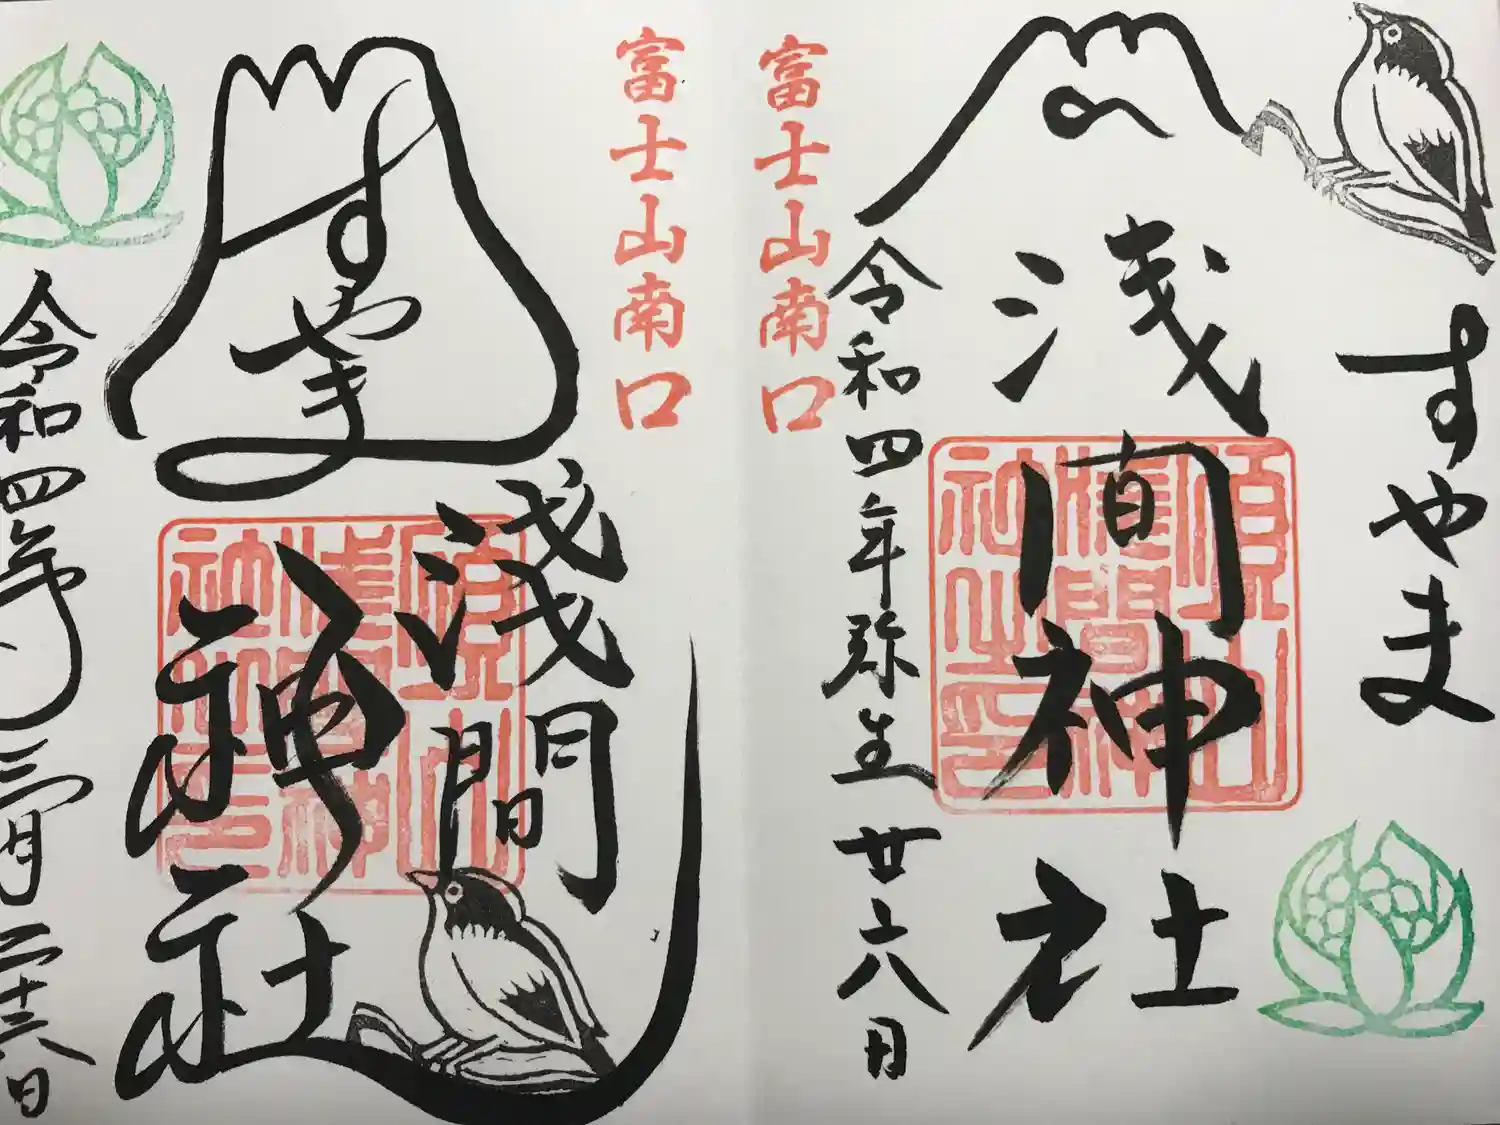 すやま
浅間神社
令和四年弥生廿六日
富士山南口
富士山南口
すやま
浅間
神社
令和四年三月二十六日